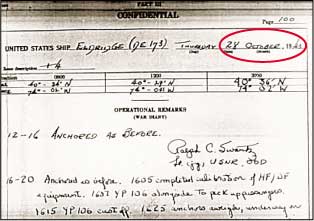 PART III
CONFIDENTIAL
Page 100
UNITED STATES SHIP ELDRIDGE (DE 173) THURSDAY 28 OCTOBER, 1943
Zone description
0800 1200 2000
40°-36'N
OPERATIONAL REMARKS
(WAR DIARY)
12-16 ANCHORED AS BEFORE.
Ralph C.
USNR, OOD
16-20 Anchored as before. 1605 completed calibration of HF/DF
equipment. YP 106 alongside to pick up passengers.
1615 YP 106 cast off. 1625 anchors aweigh, underway on